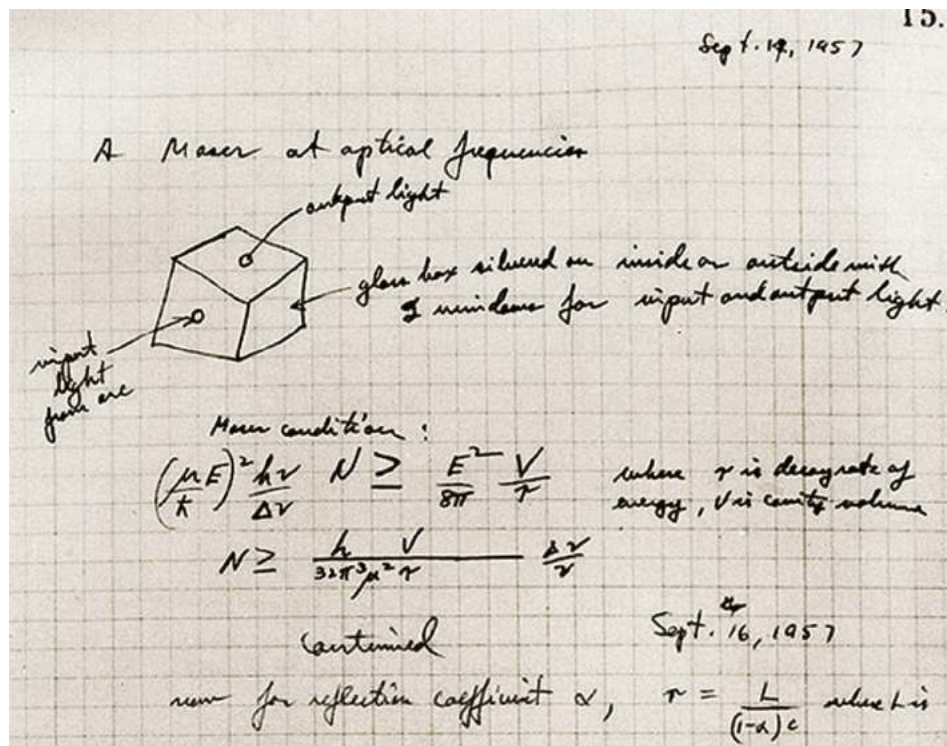 15.
Sept. 14, 1957
A Maser at optical frequencies
output light
glass box silvered on inside or outside with
2 windows for input and output light.
input
light
from arc
Maser condition:
(μE/ħ)² hν/Δν N ≥ E²/8π V/τ where τ is decay rate of
energy, V is cavity volume
N ≥ h V/32π³μ²τ Δν/ν
Continued Sept. 16, 1957
now for reflection coefficient α, τ = L/(1-α)c where L is